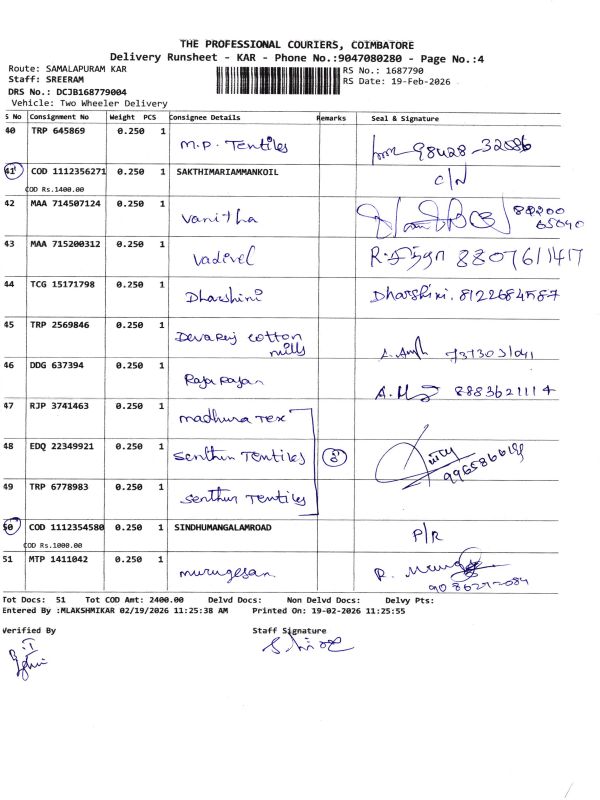 THE PROFESSIONAL COURIERS, COIMBATORE
Delivery Runsheet - KAR - Phone No.:9047080280 - Page No.:4
Route: SAMALAPURAM KAR RS No.: 1687790
Staff: SREERAM RS Date: 19-Feb-2026
DRS No.: DCJB168779004
Vehicle: Two Wheeler Delivery
S No Consignment No Weight PCS Consignee Details Remarks Seal & Signature
40 TRP 645869 0.250 1 M.P. Tentiles
41 COD 1112356271 0.250 1 SAKTHIMARIAMMANKOIL C/N
COD Rs.1400.00
42 MAA 714507124 0.250 1 Vanitha
43 MAA 715200312 0.250 1 Vadivel 8807611417
44 TCG 15171798 0.250 1 Dharshini Dharshini. 8122684587
45 TRP 2569846 0.250 1 Devaraj cotton mills
46 DDG 637394 0.250 1 Raja Rajan 8883621114
47 RJP 3741463 0.250 1 madhura Tex
48 EDQ 22349921 0.250 1 Senthur Tentiles
49 TRP 6778983 0.250 1 Senthur Tentiles
50 COD 1112354580 0.250 1 SINDHUMANGALAMROAD P/R
COD Rs.1000.00
51 MTP 1411042 0.250 1 murugesan
Tot Docs: 51 Tot COD Amt: 2400.00 Delvd Docs: Non Delvd Docs: Delvy Pts:
Entered By :MLAKSHMIKAR 02/19/2026 11:25:38 AM Printed On: 19-02-2026 11:25:55
Verified By Staff Signature